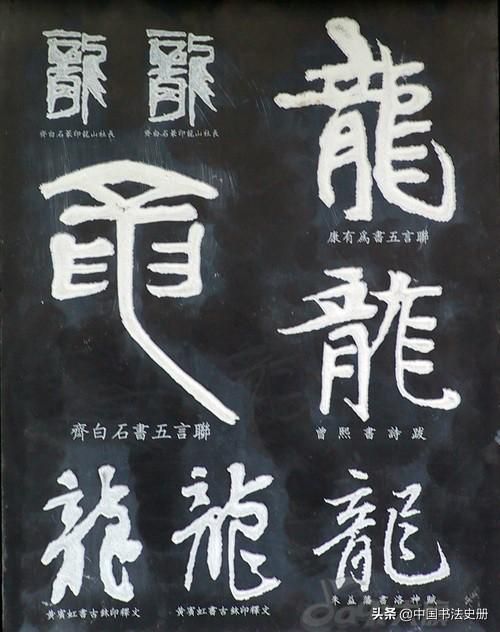 龍 龍
齊白石篆印龍山社長 齊白石篆印龍山社長
龍
康有爲書五言聯
齊白石書五言聯
龍
曾熙書詩跋
龍 龍
黃賓虹書古鉥印釋文 黃賓虹書古鉥印釋文
龍
朱益藩書洛神賦
头条 @中国书法史册